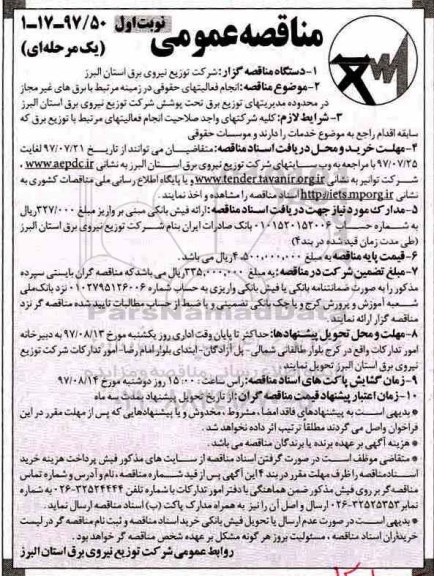 مناقصه عمومی نوبت اول ۱-۱۷-۹۷/۵۰
(یک مرحله ای)
۱-دستگاه مناقصه گزار: شرکت توزیع نیروی برق استان البرز
۲-موضوع مناقصه: انجام فعالیتهای حقوقی در زمینه مرتبط با برق های غیر مجاز
در محدوده مدیریتهای توزیع برق تحت پوشش شرکت توزیع نیروی برق استان البرز
۳- شرایط لازم: کلیه شرکتهای واجد صلاحیت انجام فعالیتهای مرتبط با توزیع برق که
سابقه اقدام راجع به موضوع خدمات را دارند و موسسات حقوقی
۴-مهلت خرید و محل دریافت اسناد مناقصه: متقاضیان می توانند از تاریخ ۹۷/۰۷/۲۱ لغایت
۹۷/۰۷/۲۵ با مراجعه به وب سایتهای شرکت توزیع نیروی برق استان البرز به نشانی www.aepdc.ir ,
شرکت توانیر به نشانی www.tender.tavanir.org.ir و یا پایگاه اطلاع رسانی ملی مناقصات کشوری به
نشانی http://iets.mporg.ir اسناد مناقصه را مشاهده و اخذ نمایند.
۵-مدارک مورد نیاز جهت دریافت اسناد مناقصه: ارائه فیش بانکی مبنی بر واریز مبلغ ۳۲۷/۰۰۰ ریال
به شماره حساب ۰۱۰۱۵۲۰۱۵۲۰۰۶ بانک صادرات ایران بنام شرکت توزیع نیروی برق استان البرز
(طی مدت زمان قید شده در بند ۴)
۶-قیمت پایه مناقصه به مبلغ ۴,۵۰۰,۰۰۰,۰۰۰ ریال می باشد.
۷-مبلغ تضمین شرکت در مناقصه: به مبلغ ۳۳۵,۰۰۰,۰۰۰ ریال می باشد که مناقصه گران بایستی سپرده
مذکور را به صورت ضمانتنامه بانکی یا فیش بانکی واریزی به حساب شماره ۰۱۰۲۷۹۵۱۲۶۰۰۶ نزد بانک ملی
شعبه آموزش و پرورش کرج و یا چک بانکی تضمینی و یا ضبط از حساب مطالبات تایید شده مناقصه گر نزد
مناقصه گزار ارائه نمایند.
۸-مهلت و محل تحویل پیشنهادها: حداکثر تا پایان وقت اداری روز یکشنبه مورخ ۹۷/۰۸/۱۳ به دبیرخانه
امور تدارکات واقع در کرج بلوار طالقانی شمالی-پل آزادگان-ابتدای بلوار امام رضا-امور تدارکات شرکت توزیع
نیروی برق استان البرز تحویل نمایند.
۹-زمان گشایش پاکت های اسناد مناقصه: راس ساعت ۱۵:۰۰ روز دوشنبه مورخ ۹۷/۰۸/۱۴
۱۰-زمان اعتبار پیشنهاد قیمت مناقصه گران: از تاریخ تحویل پیشنهاد بمدت سه ماه
* بدیهی است به پیشنهادهای فاقد امضا، مشروط، مخدوش و یا پیشنهادهایی که پس از مهلت مقرر در این
فراخوان واصل می گردند مطلقا ترتیب اثر داده نخواهد شد.
* هزینه آگهی بر عهده برنده یا برندگان مناقصه می باشد.
* متقاضی موظف است در صورت گرفتن اسناد مناقصه از سایت های مذکور فیش پرداخت هزینه خرید
اسناد مناقصه را ظرف مهلت مقرر در بند ۴ این آگهی پس از قید شماره مناقصه، نام و آدرس و شماره تماس
مناقصه گر بر روی فیش مذکور ضمن هماهنگی با دفتر امور تدارکات با شماره تلفن ۳۲۵۲۴۴۴۴-۰۲۶ به شماره
نمابر ۳۲۵۲۵۳۵۳-۰۲۶ ارسال و اصل آن را نیز به همراه مدارک پاکت (ب) اسناد مناقصه ارسال نماید.
* بدیهی است در صورت عدم ارسال یا تحویل فیش بانکی خرید اسناد مناقصه و ثبت نام مناقصه گر در لیست
خریداران اسناد مناقصه، مسئولیت بروز هر گونه مشکل بر عهده شخص مناقصه گر خواهد بود.
روابط عمومی شرکت توزیع نیروی برق استان البرز